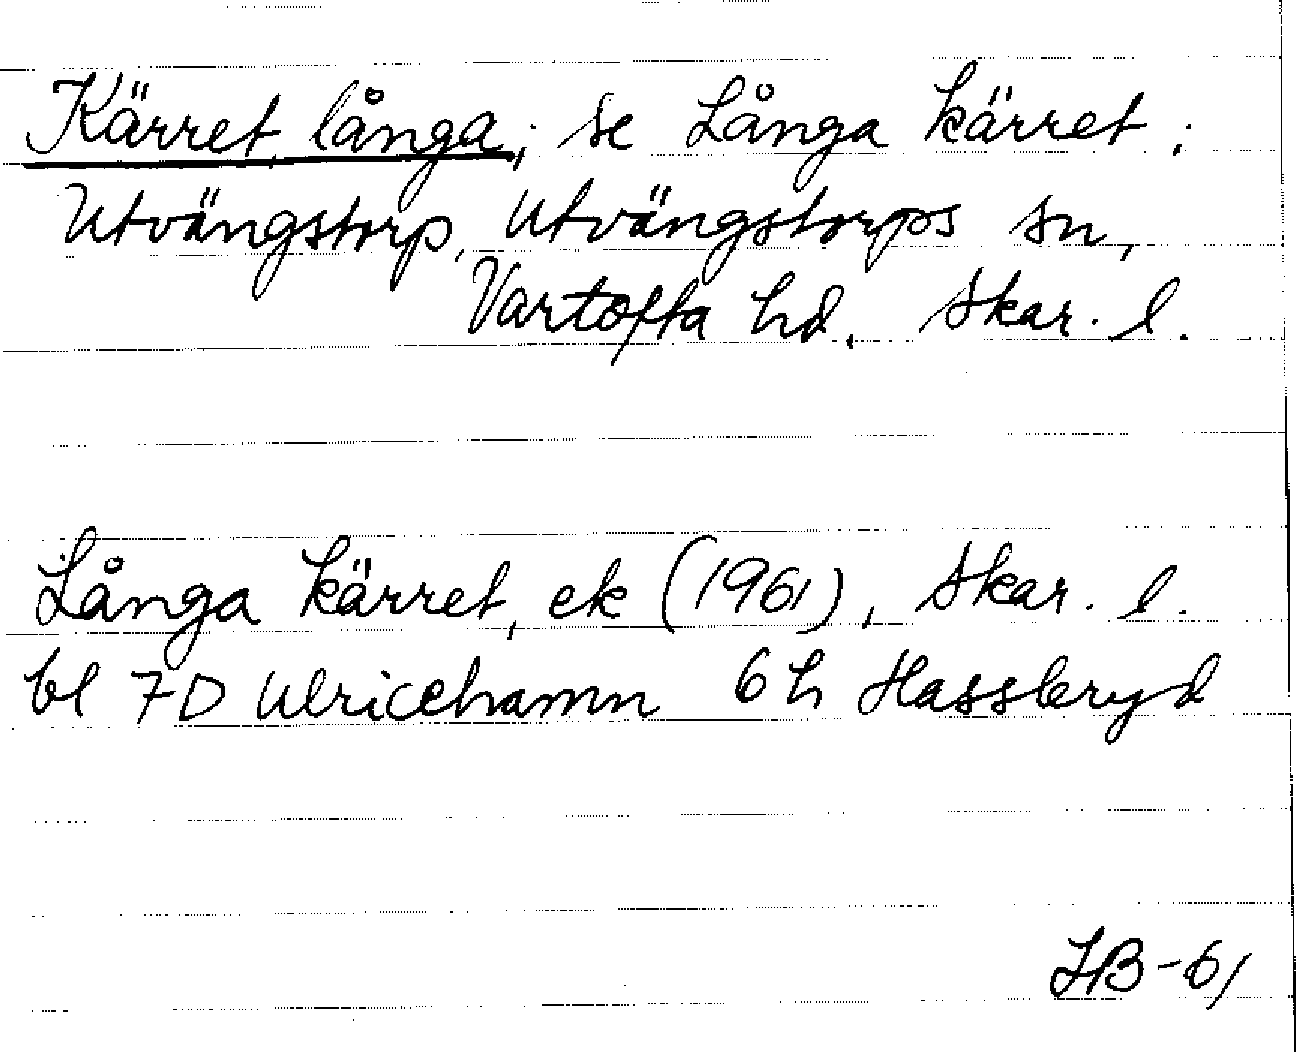 Kärret, långa; se Långa kärret;
Utvängstorp, Utvängstorps sn,
Vartofta hd, Skar. l.
Långa kärret, ek (1961), Skar. l.
bl 7D Ulricehamn 6h Hassleryd
HB-61